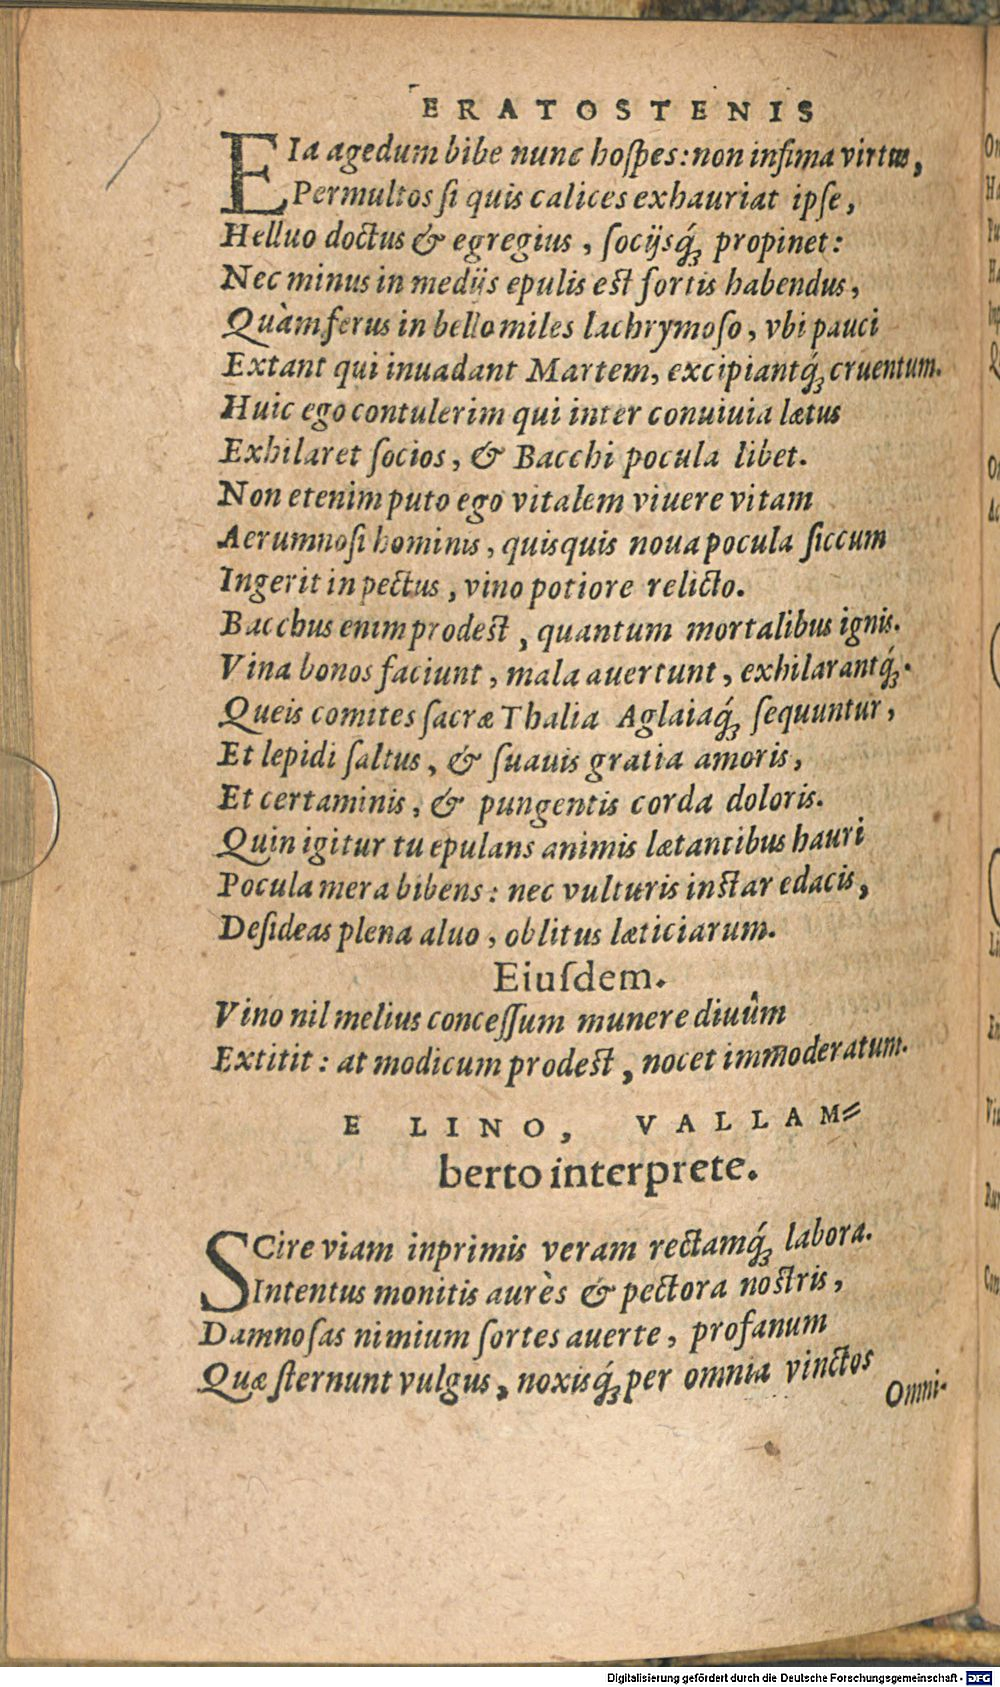 ERATOSTENIS
EIa agedum bibe nunc hoſpes: non infima virtus,
Permultos ſi quis calices exhauriat ipſe,
Helluo doctus & egregius, ſocijsq́ꝫ propinet:
Nec minus in medijs epulis est fortis habendus,
Quàm ferus in bello miles lachrymoſo, vbi pauci
Extant qui inuadant Martem, excipiantq́ꝫ cruentum.
Huic ego contulerim qui inter conuiuia lætus
Exhilaret ſocios, & Bacchi pocula libet.
Non etenim puto ego vitalem viuere vitam
Aerumnoſi hominis, quisquis noua pocula ſiccum
Ingerit in pectus, vino potiore relicto.
Bacchus enim prodest, quantum mortalibus ignis.
Vina bonos faciunt, mala auertunt, exhilarantq́ꝫ.
Queis comites ſacræ Thalia Aglaiaq́ꝫ ſequuntur,
Et lepidi ſaltus, & ſuauis gratia amoris,
Et certaminis, & pungentis corda doloris.
Quin igitur tu epulans animis lætantibus hauri
Pocula mera bibens: nec vulturis instar edacis,
Deſideas plena aluo, oblitus læticiarum.
Eiuſdem.
Vino nil melius conceſſum munere diuûm
Extitit: at modicum prodest, nocet immoderatum.
E LINO, VALLAM⸗
berto interprete.
SCire viam inprimis veram rectamq́ꝫ labora.
Intentus monitis aurès & pectora nostris,
Damnoſas nimium ſortes auerte, profanum
Quæ ſternunt vulgus, noxisq́ꝫ per omnia vinctos
Omni-
Digitalisierung gefördert durch die Deutsche Forschungsgemeinschaft - DFG